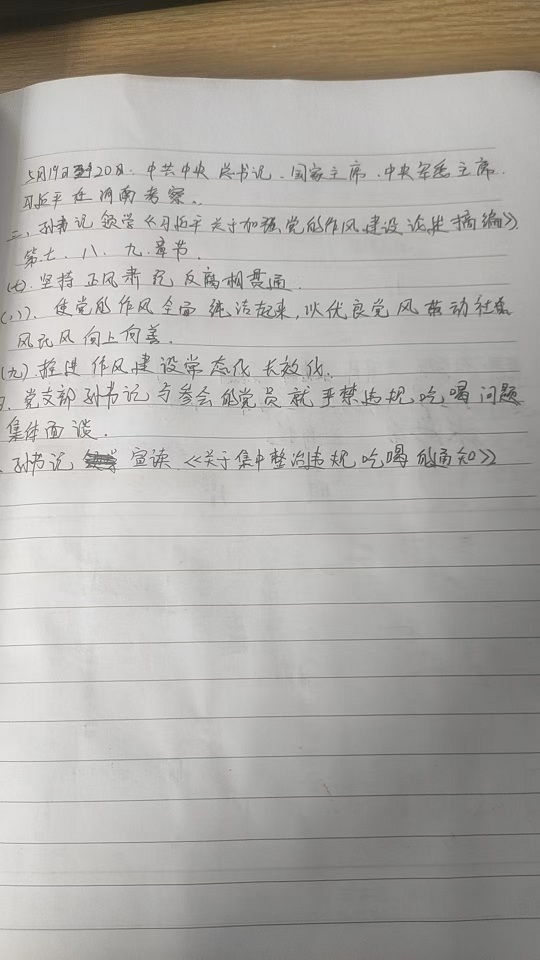 5月19日至20日. 中共中央 总书记、国家主席、中央军委主席
习近平在河南考察.
三、孙书记领学《习近平关于加强党的作风建设论述摘编》
第七、八、九、章节.
(七).坚持正风肃纪反腐相贯通.
(八). 使党的作风全面纯洁起来,以优良党风带动社会
风气风向上向善.
(九).推进作风建设常态化长效化.
党支部孙书记与参会的党员就严禁违规吃喝问题
集体面谈.
孙书记 宣读《关于集中整治违规吃喝的通知》